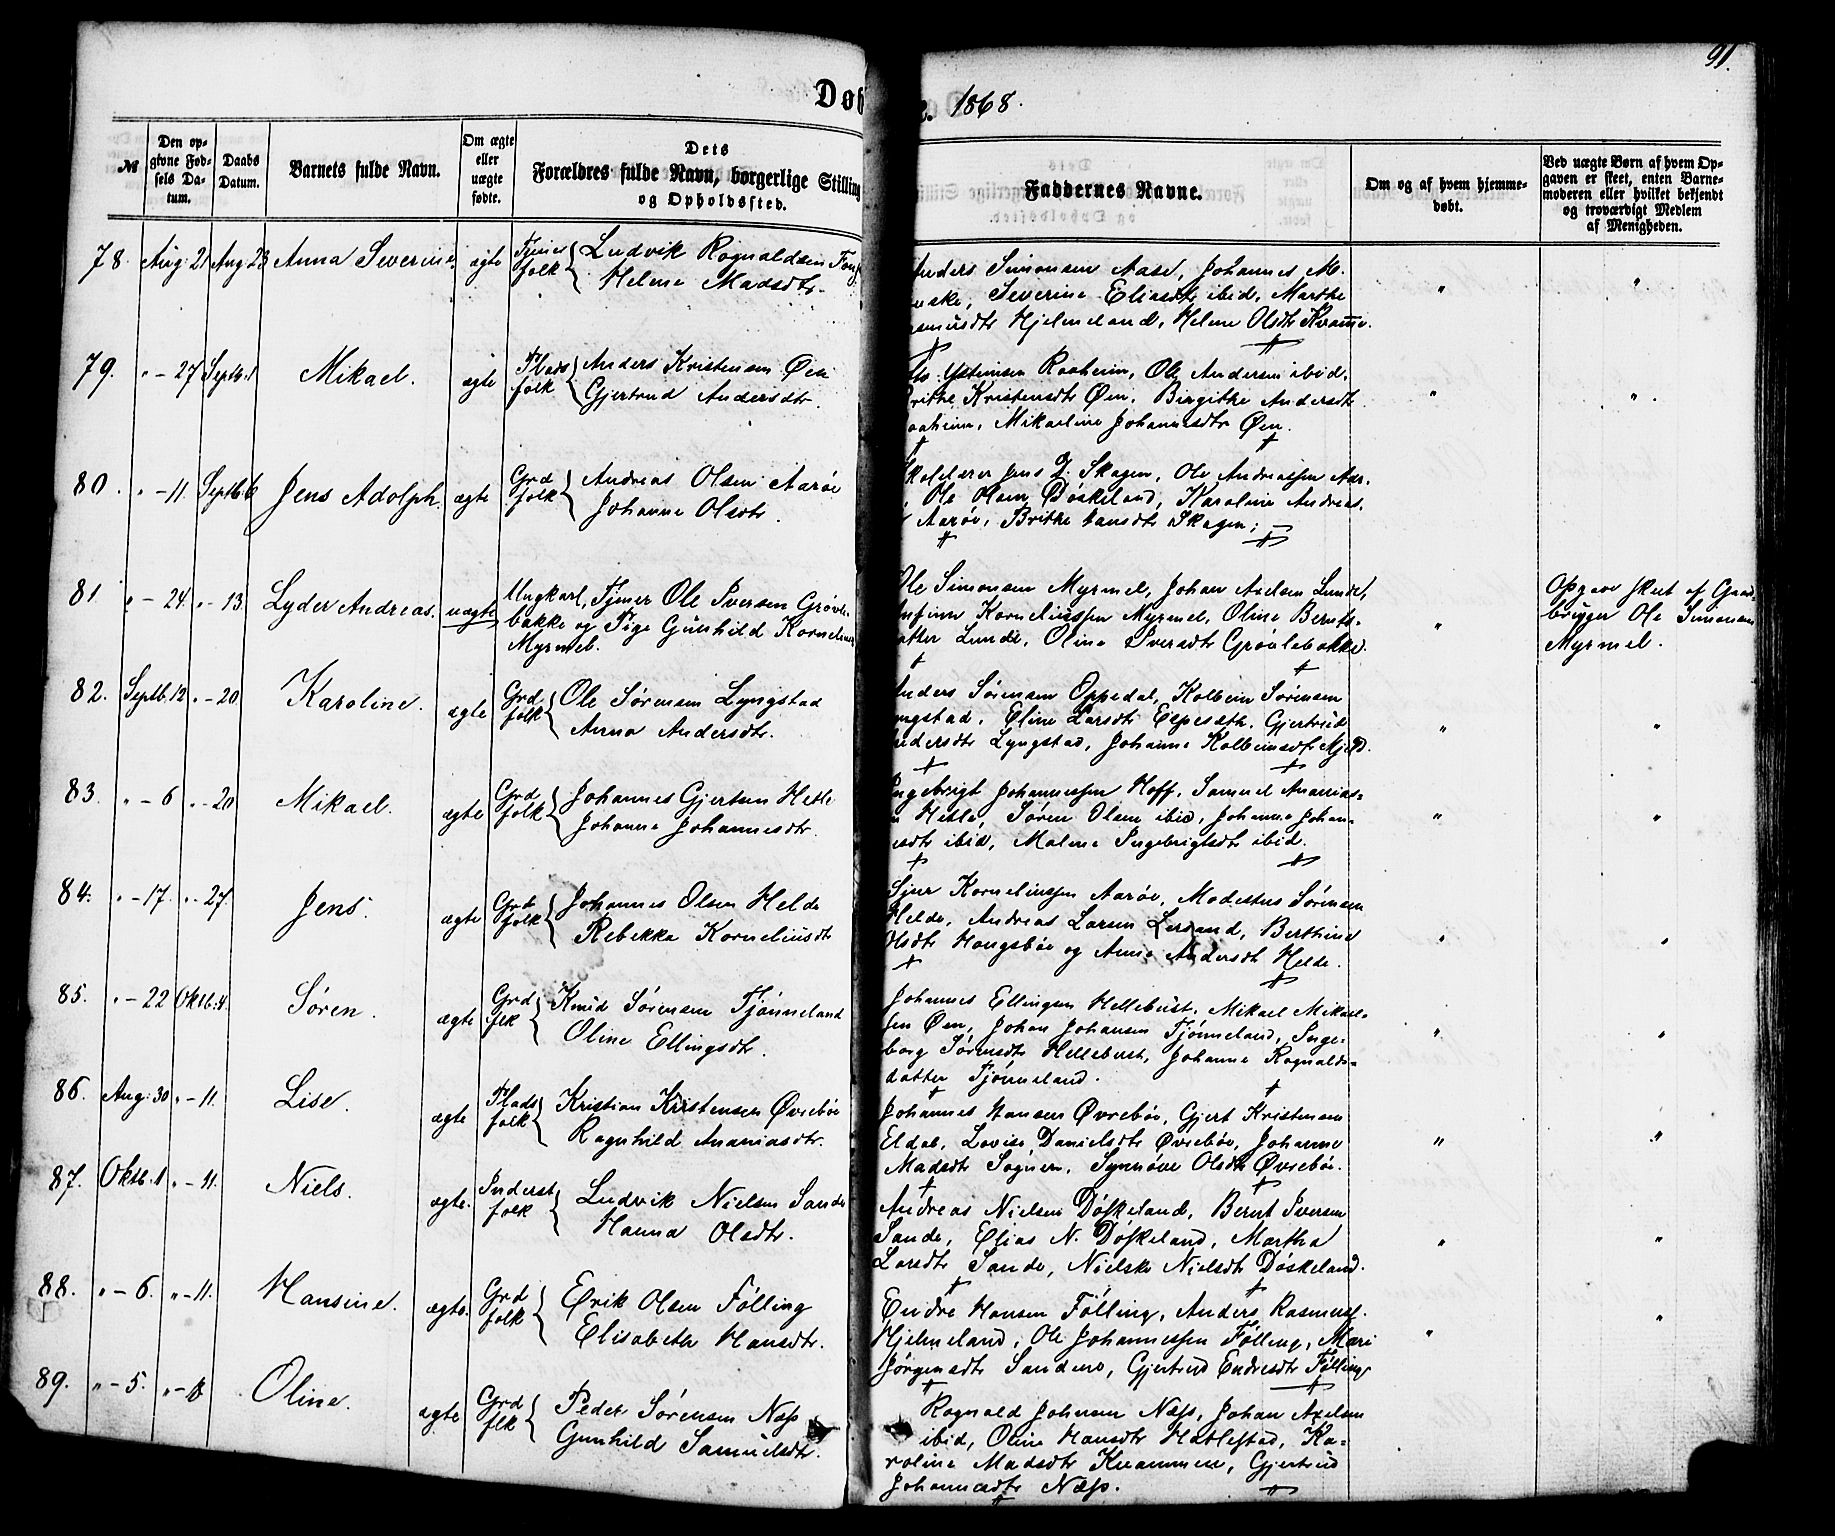 91.
Døb
e. 1868.
№
Den opgivne Fødsels Datum.
Daabs Datum.
Barnets fulde Navn.
Om ægte eller uægte fødte.
Dets Forældres fulde Navn, borgerlige Stilling og Opholdssted.
Faddernes Navne.
Om og af hvem hjemmedøbt.
Ved uægte Børn af hvem Opgaven er skeet, enten Barnemoderen eller hvilket bekjendt og troværdigt Medlem af Menigheden.
78. Aug: 21 Aug 23 Anna Severine. ægte Tjenerfolk Ludvik Rognaldsen
Helene Madsdtr.
Anders Simonsen Aase, Johannes M.
Severine Eliasdtr ibid, Marthe
Hjelmeland, Helene Olsdtr Kvamme.
79. " – 27 Septb. 1 Mikael. ægte Pladsfolk Anders Kristensen Øen
Gjertrud Andersdtr.
Ystensen Raaheim, Ole Andersen ibid,
Brithe Kristensdtr Øen, Birgithe Andersdtr
Raaheim, Mikaeline Johannesdtr Øen.
80. " – 11. Septb. 6 Jens Adolph. ægte Grdfolk Andreas Olsen Aarøe
Johanne Olsdtr.
Skolelærer Jens J. Skagen, Ole Andreassen Aar-
Ole Olsen Døskeland, Karoline Andreas.
Aarøe, Brithe Hansdtr Skagen;
81 " – 24. " – 13. Lyder Andreas. uægte Ungkarl, Tjener Ole Iversen Grøvle-
bakke og Pige Gunhild Kornelius
Myrmel.
Ole Simonsen Myrmel, Johan Axelsen Lunde,
Korneliussen Myrmel, Oline Bernts-
datter Lunde, Oline Iversdtr Grøvlebakke.
Opgave skeet af Gaard-
bruger Ole Simonsen
Myrmel.
82. Septb. 12 " – 20. Karoline. ægte Grdfolk Ole Sørensen Lyngstad
Anna Andersdtr.
Anders Sørensen Oppedal, Kolbein Sørensen
Lyngstad, Eline Larsdtr Espesæth, Gjertrud
Andersdtr Lyngstad, Johanne Kolbeinsdtr
83. " – 6 " – 20 Mikael. ægte Grdfolk Johannes Gjertsen Hetle
Johanne Johannesdtr.
Ingebrigt Johannessen Hoff, Samuel Ananias-
n Hetle, Søren Olsen ibid, Johanne Johan-
nesdtr ibid, Malene Ingebrigtsdtr ibid.
84. " – 17. " – 27. Jens. ægte Grdfolk Johannes Olsen Helde
Rebekka Korneliusdtr
Sjur Korneliussen Aarøe, Modestus Sørensen
Helde, Andreas Larsen Lersand, Berthine
Olsdtr Haugsbøe og Anne Andersdtr Helde.
85. " – 22 Oktb. 4. Søren. ægte Grdflk Knud Sørensen Tjønneland
Oline Ellingsdtr.
Johannes Ellingsen Hellebust, Mikael Mikael-
sen Øen, Johan Johansen Tjønneland, Inge-
borg Sørensdtr Hellebust, Johanne Rognalds-
datter Tjønneland.
86. Aug: 30 " – 11. Lise. ægte Pladsfolk Kristian Kristensen Øvrebøe
Ragnhild Ananiasdtr.
Johannes Hansen Øvrebøe, Gjert Kristensen
Eldal, Lovise Danielsdtr Øvrebøe, Johanne
Madsdtr Sognen, Synnøve Olsdtr Øvrebøe.
87. Oktb. 1 " – 11. Niels. ægte. Inderstfolk Ludvik Nielsen Sande
Hanna Olsdtr.
Andreas Nielsen Døskeland, Bernt Iversen
Sande, Elias N. Døskeland, Martha
Larsdtr Sande, Nielske Nielsdtr Døskeland.
88. " – 6. " – 11. Hansine. ægte. Grdfolk Erik Olsen Følling
Elisabeth Hansdtr.
Endre Hansen Følling, Anders Rasmuss.
Hjelmeland, Ole Johannessen Følling, Mari
Jørgensdtr Sandene, Gjertrud Endresdtr Følling.
89. " – 5. Oline. ægte Grdflk Peder Sørensen Næss
Gunhild Samuelsdtr.
Rognald Johnsen Næss, Johan Axelsen
ibid, Oline Hansdtr Hatlestad, Ka-
roline Madsdtr Kvammen, Gjertrud
Johannesdtr Næss.